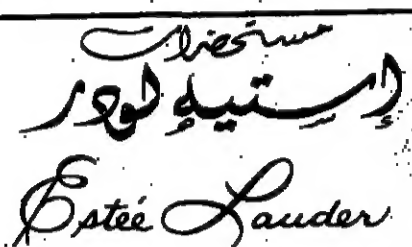 مستحضرات
إستيه لودر
Estée Lauder